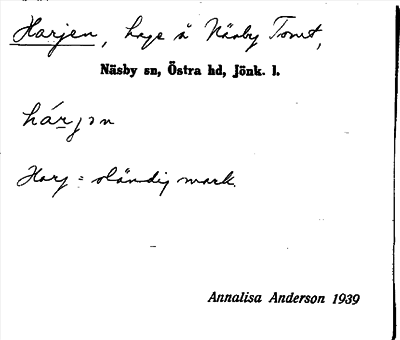 Harjen, hage å Näsby Tomt,
Näsby sn, Östra hd, Jönk. l.
hárjən
Harj = oländig mark.
Annalisa Anderson 1939